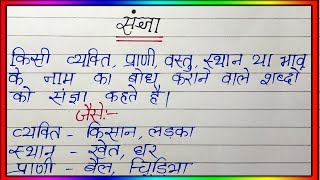 संज्ञा
किसी व्यक्ति, प्राणी, वस्तु, स्थान या भाव
के नाम का बोध कराने वाले शब्दों
को संज्ञा कहते है।
जैसे:-
व्यक्ति - किसान, लड़का
स्थान - खेत, घर
प्राणी - बैल, चिड़िया